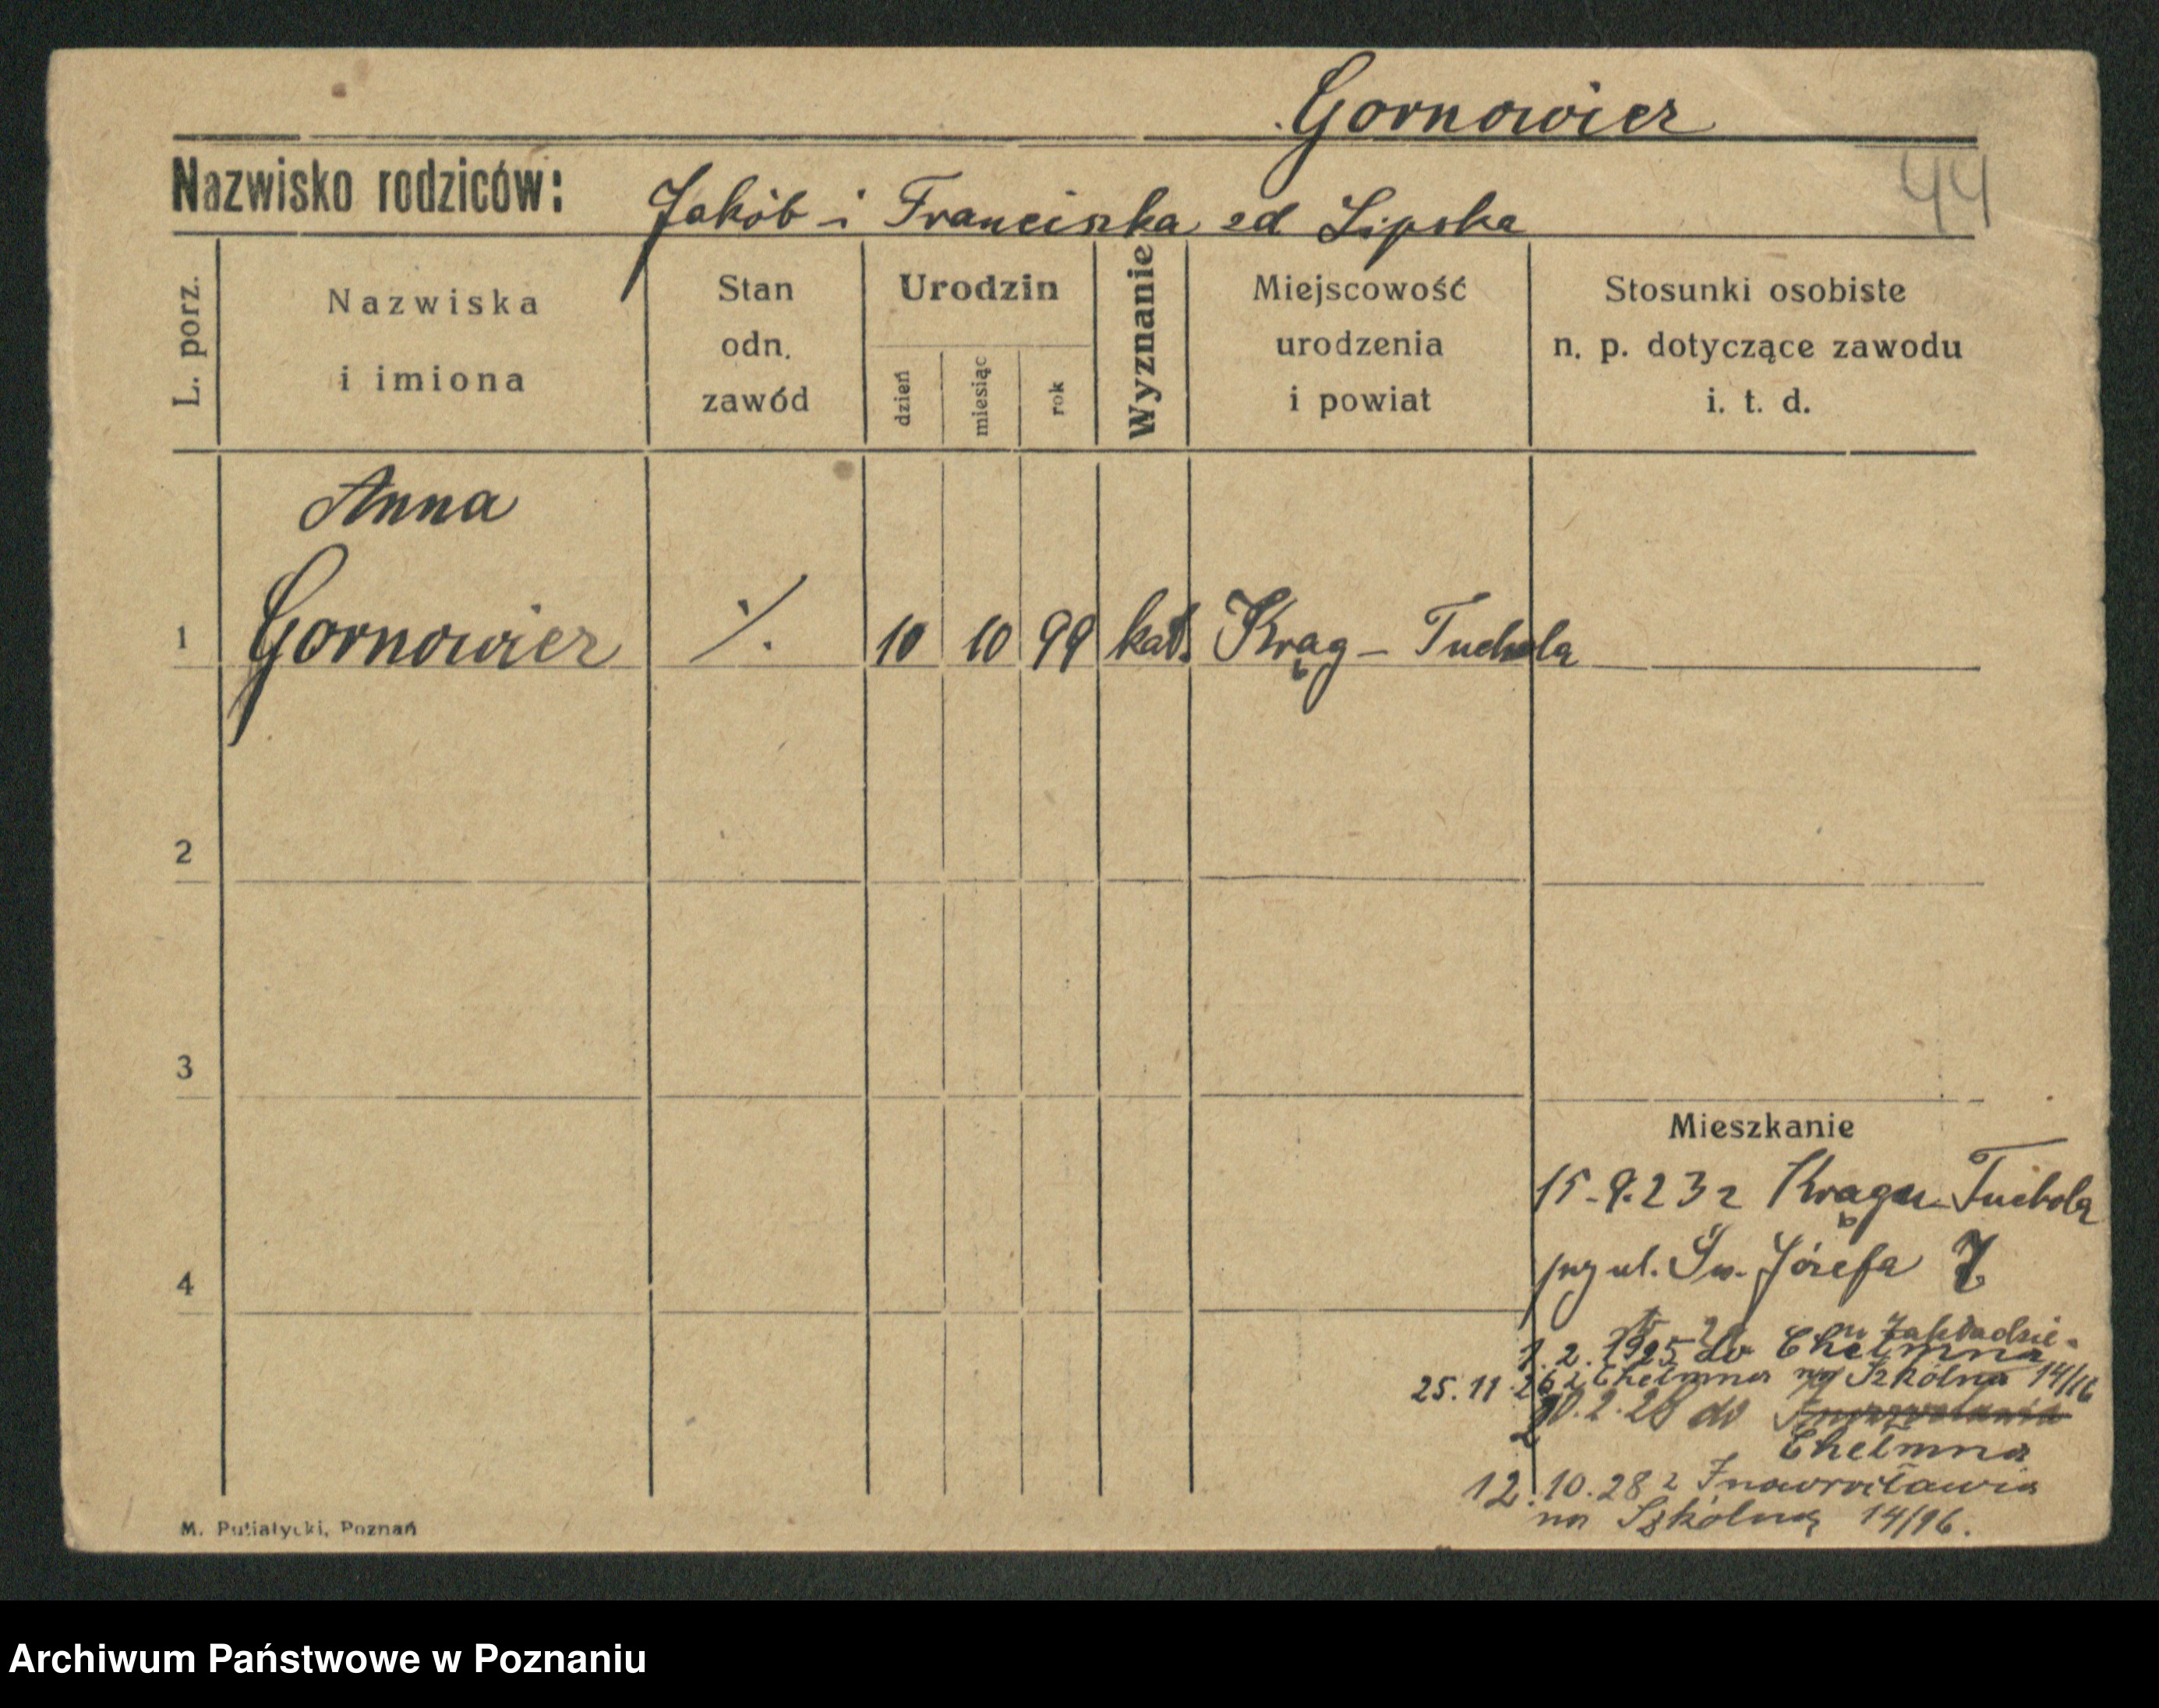 Gornowicz
Nazwisko rodziców: Jakób i Franciszka zd Lipska
44
L. porz.
Nazwiska
i imiona
Stan
odn.
zawód
Urodzin
dzień
miesiąc
rok
Wyznanie
Miejscowość
urodzenia
i powiat
Stosunki osobiste
n. p. dotyczące zawodu
i. t. d.
Anna
1 Gornowicz ./. 10 10 99 kat. Krąg – Tuchola
2
3
4
Mieszkanie
15-9.23 z Krągu - Tuchola
przy ul. Św. Józefa 7
w Zakładzie.
1.2.1925 do Chełmna
25.11.26 z Chełmna na Szkólną 14/16
2.28 do
Chełmna
12.10.28 z Inowrocławia
na Szkólną 14/16.
M. Putiatycki, Poznań
Archiwum Państwowe w Poznaniu